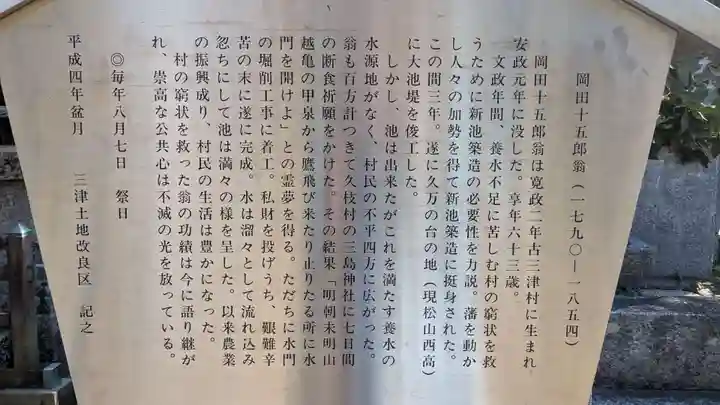 岡田十五郎翁(一七九〇―一八五四)
岡田十五郎翁は寛政二年古三津村に生まれ
安政元年に没した。享年六十三歳。
文政年間、養水不足に苦しむ村の窮状を救
うために新池築造の必要性を力説。藩を動か
し人々の加勢を得て新池築造に挺身された。
この間三年。遂に久万の台の地(現松山西高)
に大池堤を俊工した。
しかし、池は出来たがこれを満たす養水の
水源地がなく、村民の不平四方に広がった。
翁も百方計つきて久枝村の三島神社に七日間
の断食祈願をかけた。その結果「明朝未明山
越亀の甲泉から鷹飛び来たり止りたる所に水
門を開けよ」との霊夢を得る。ただちに水門
の堀削工事に着工。私財を投げうち、艱難辛
苦の末に遂に完成。水は溜々として流れ込み
忽ちにして池は満々の様を呈した。以来農業
の振興成り、村民の生活は豊かになった。
村の窮状を救った翁の功績は今に語り継が
れ、崇高な公共心は不滅の光を放っている。
◎毎年八月七日 祭日
平成四年盆月 三津土地改良区 記之